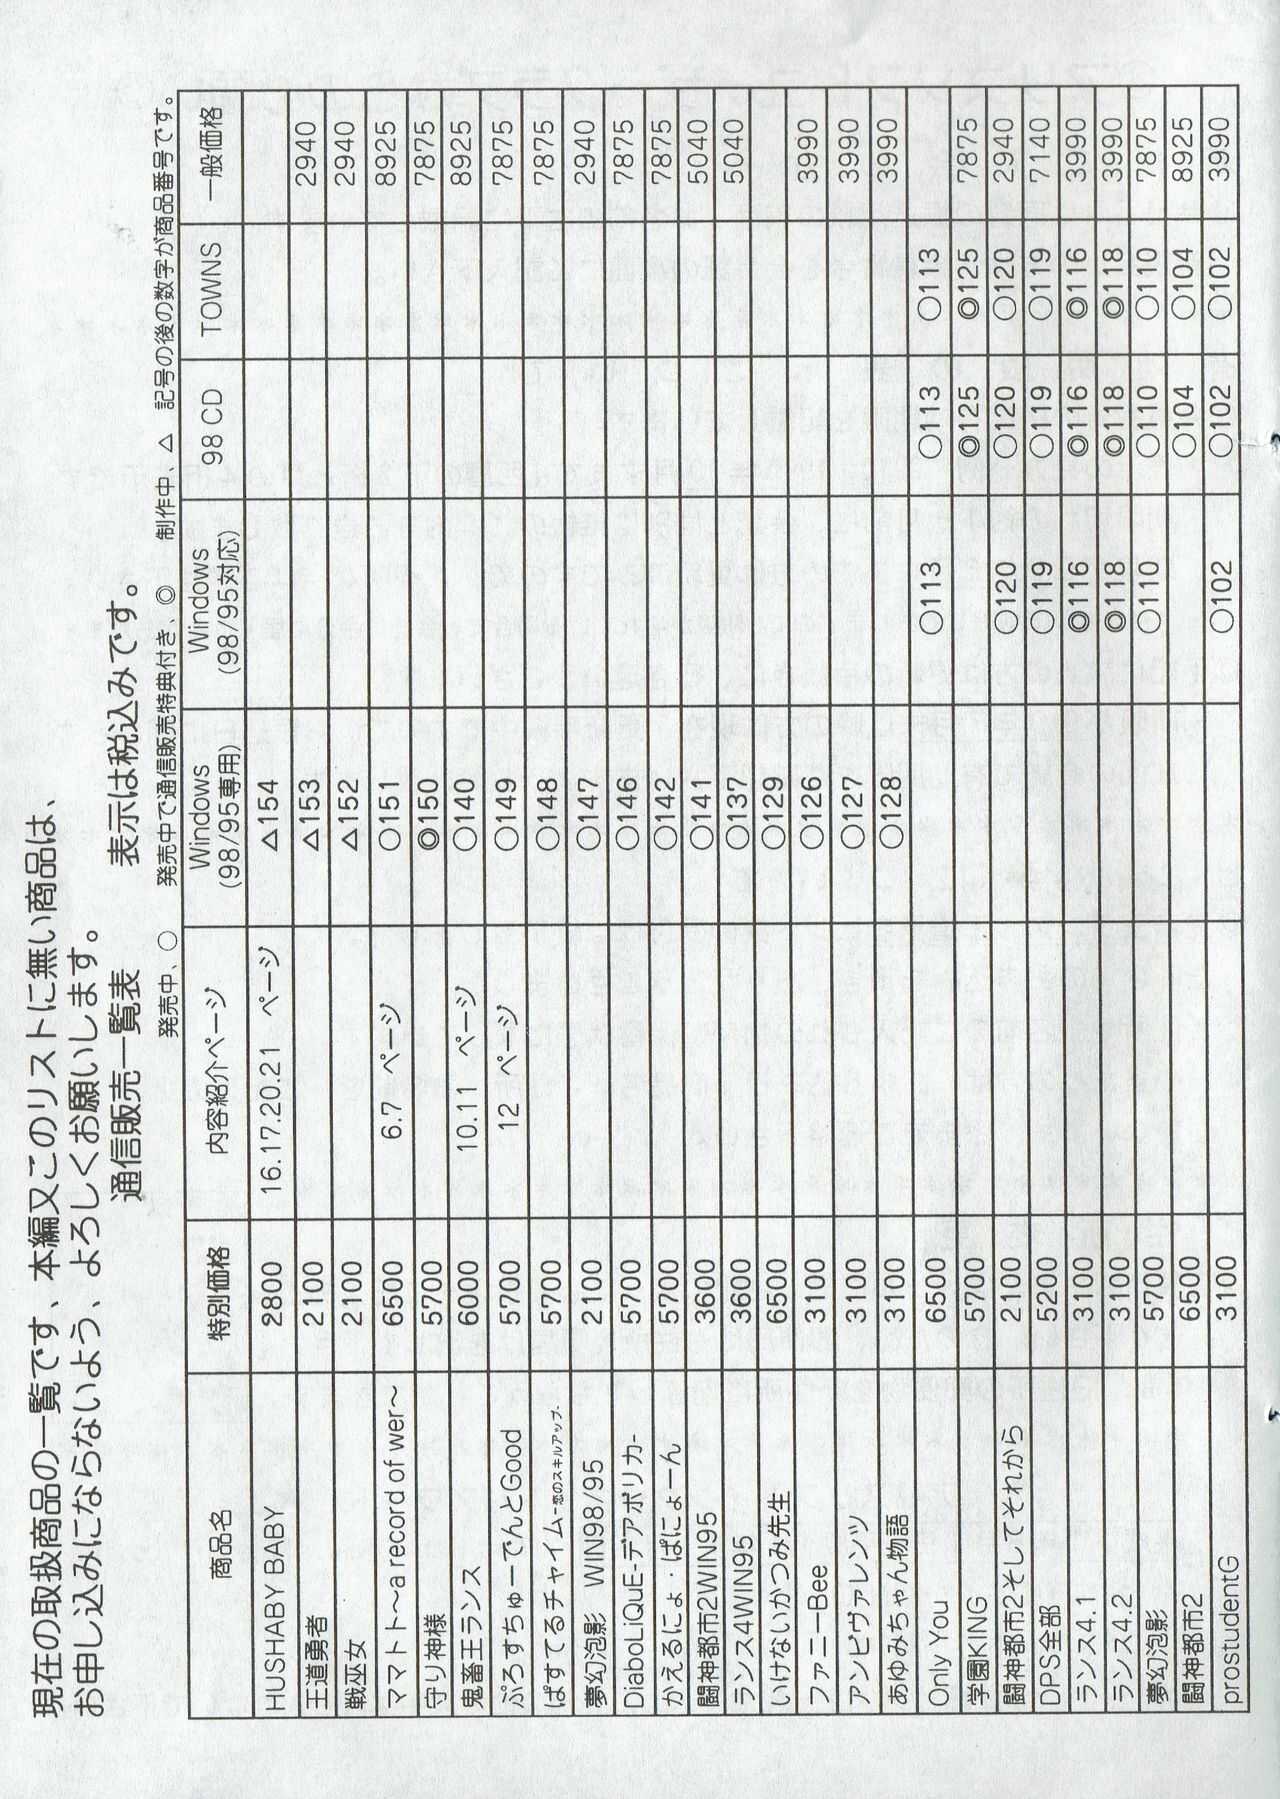 現在の取扱商品の一覧です、本編又このリストに無い商品は、
お申し込みにならないよう、よろしくお願いします。
通信販売一覧表 表示は税込みです。
発売中、○ 発売中で通信販売特典付き、◎ 制作中、△ 記号の後の数字が商品番号です。
商品名 特別価格 内容紹介ページ Windows (98/95専用) Windows (98/95対応) 98 CD TOWNS 一般価格
HUSHABY BABY 2800 16.17.20.21 ページ △154
王道勇者 2100 △153 2940
戦巫女 2100 △152 2940
ママトト〜a record of wer〜 6500 6.7 ページ ○151 8925
守り神様 5700 ◎150 7875
鬼畜王ランス 6000 10.11 ページ ○140 8925
ぷろすちゅーでんとGood 5700 12 ページ ○149 7875
ぱすてるチャイム-恋のスキルアップ- 5700 ○148 7875
夢幻泡影 WIN98/95 2100 ○147 2940
DiaboLiQuE-デアボリカ- 5700 ○146 7875
かえるにょ・ぱにょーん 5700 ○142 7875
闘神都市2WIN95 3600 ○141 5040
ランス4WIN95 3600 ○137 5040
いけないかつみ先生 6500 ○129
ファニーBee 3100 ○126 3990
アンビヴァレンツ 3100 ○127 3990
あゆみちゃん物語 3100 ○128 3990
Only You 6500 ○113 ○113 ○113
学園KING 5700 ◎125 ◎125 7875
闘神都市2そしてそれから 2100 ○120 ○120 ○120 2940
DPS全部 5200 ○119 ○119 ○119 7140
ランス4.1 3100 ◎116 ◎116 ◎116 3990
ランス4.2 3100 ◎118 ◎118 ◎118 3990
夢幻泡影 5700 ○110 ○110 ○110 7875
闘神都市2 6500 ○104 ○104 8925
prostudentG 3100 ○102 ○102 ○102 3990